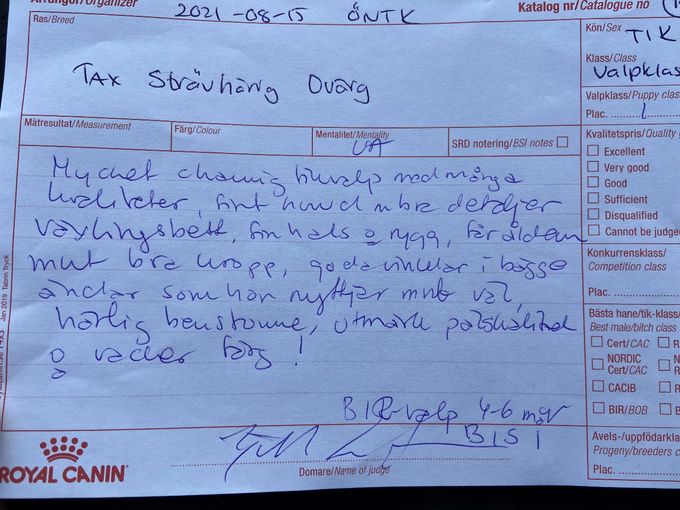 Arrangör/Organizer 2021-08-15 ÖNTK Katalog nr/Catalogue no
Ras/Breed
TAX Strävhårig Dvärg
Kön/Sex TIK
Klass/Class
Valpklas
Valpklass/Puppy clas
Plac. 1
Mätresultat/Measurement Färg/Colour Mentalitet/Mentality UA SRD notering/BSI notes
Kvalitetspris/Quality
Excellent
Very good
Good
Sufficient
Disqualified
Cannot be judged
Mycket charmig tikvalp med många
kvaliteter, fint huvud m bra detaljer
växlingsbett, fin hals o rygg, för åldern
mkt bra kropp, goda vinklar i bägge
ändar som hon nyttjar mkt väl,
härlig benstomme, utmärk pälskvalitet
o vacker färg!
Konkurrensklass/
Competition class
Plac.
Bästa hane/tik-klass/
Best male/bitch class
Cert/CAC R
NORDIC
Cert/CAC R
CACIB R
BIR/BOB B
BIR-valp 4-6 mån
BIS 1
Avels-/uppfödarkla
Progeny/breeders c
Plac.
ROYAL CANIN
Domare/Name of judge
Jan 2019 Tabrin Tryck